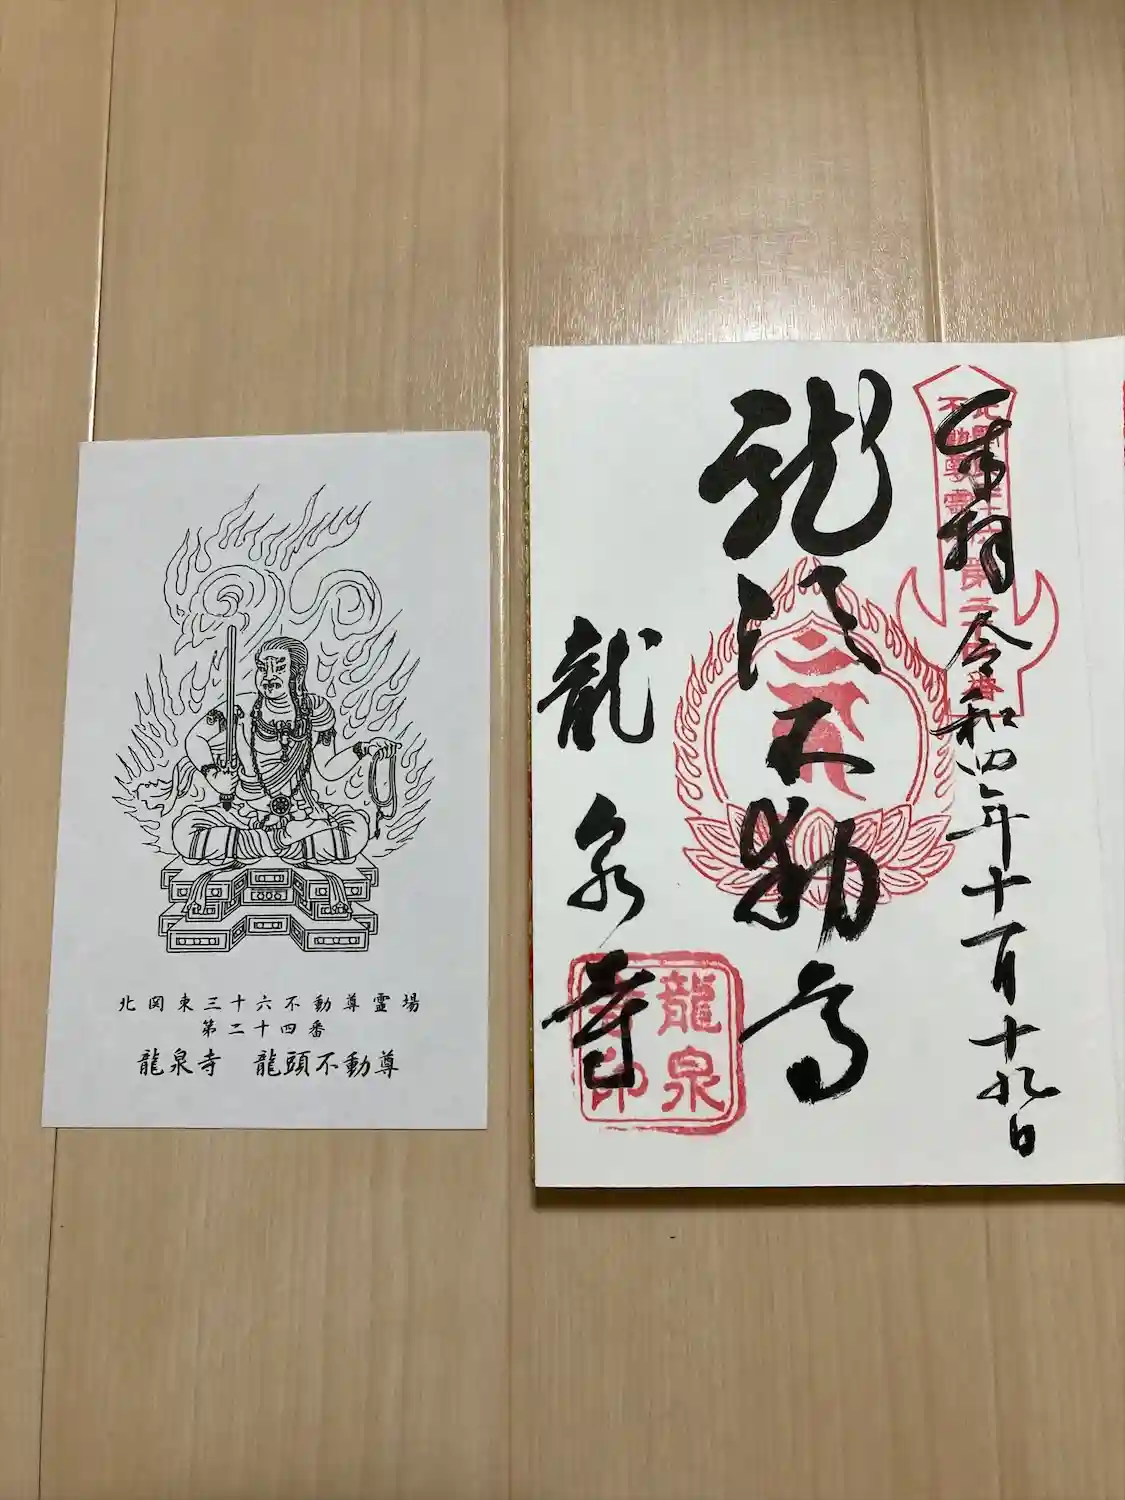 北関東三十六不動尊霊場
第二十四番
龍泉寺　龍頭不動尊
奉拝 令和四年十一月十九日
龍頭不動尊
龍泉寺
龍泉
寺印